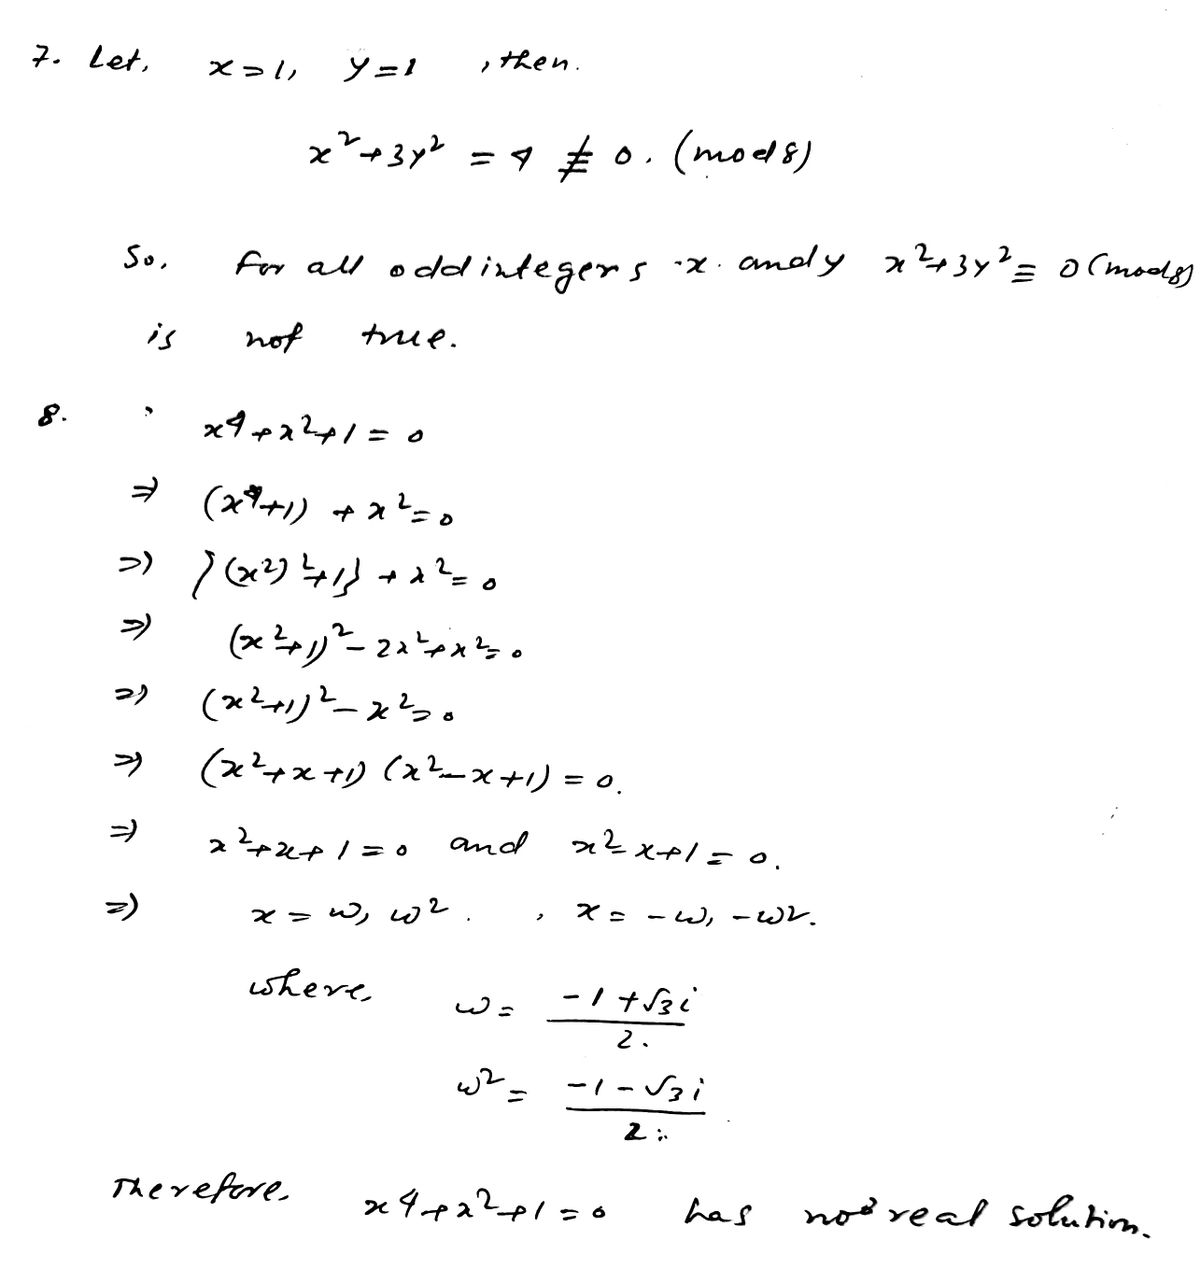 7. Let, x=1, y=1, then.
x²+3y² = 4 ≢ 0. (mod 8)
So, for all odd integers x and y x²+3y² ≡ 0 (mod 8)
is not true.
8. x⁴+x²+1=0
⇒ (x⁴+1) + x²=0
⇒ {(x²)²+1} + x²=0
⇒ (x²+1)²-2x²+x²=0
⇒ (x²+1)²-x²=0
⇒ (x²+x+1) (x²-x+1) = 0.
⇒ x²+x+1=0 and x²-x+1=0.
⇒ x = ω, ω². , x = -ω, -ω².
where, ω = (-1+√3i)/2.
ω² = (-1-√3i)/2.
Therefore, x⁴+x²+1=0 has no real solution.